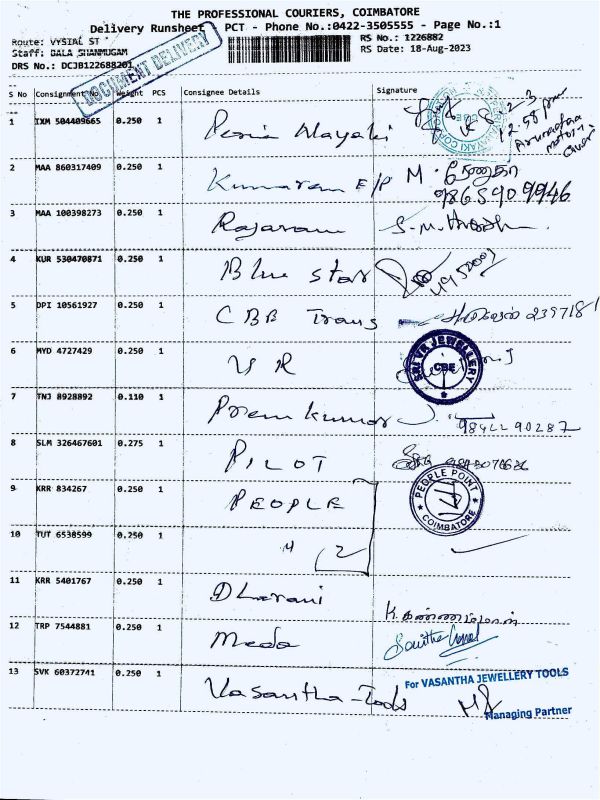 THE PROFESSIONAL COURIERS, COIMBATORE
Delivery Runsheet PCT - Phone No.:0422-3505555 - Page No.:1
Route: VYSIAL ST
RS No.: 1226882
Staff: BALA SHANMUGAM
RS Date: 18-Aug-2023
DRS No.: DCJB122688201
DOCUMENT DELIVERY
S No Consignment No. Weight PCS Consignee Details Signature
1 IXM 504409665 0.250 1
12:58 pm
2 MAA 860317409 0.250 1 Kumaran E/P M.
9865909946
3 MAA 100398273 0.250 1 Rajaram
4 KUR 530470871 0.250 1 Blue star
5 DPI 10561927 0.250 1 CBB Trans
6 MYD 4727429 0.250 1 V R
SRI VR JEWELLERY CBE
7 TNJ 8928892 0.110 1 Prem kumar
9842290287
8 SLM 326467601 0.275 1 PILOT
9 KRR 834267 0.250 1 PEOPLE
PEOPLE POINT COIMBATORE
10 TUT 6538599 0.250 1 " 2
11 KRR 5401767 0.250 1 Dharani
12 TRP 7544881 0.250 1 Meda
13 SVK 60372741 0.250 1 Vasantha-Tools
For VASANTHA JEWELLERY TOOLS
Managing Partner